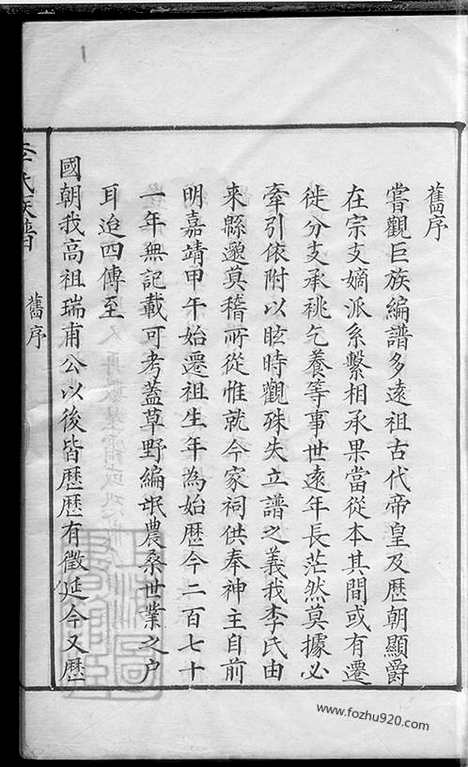 舊序
嘗觀巨族編譜多遠祖古代帝皇及歷朝顯爵
在宗支嫡派系繫相承果當從本其間或有遷
徙分支承祧乞養等事世遠年長茫然莫據必
牽引依附以眩時觀殊失立譜之義我李氏由
來縣邈莫稽所從惟就今家祠供奉神主自前
明嘉靖甲午始遷祖生年為始歷今二百七十
一年無記載可考蓋草野編氓農桑世業之户
耳迨四傳至
國朝我高祖瑞甫公以後皆歷歷有徵延今又歷
李氏族譜
舊序
www.fozhu920.com